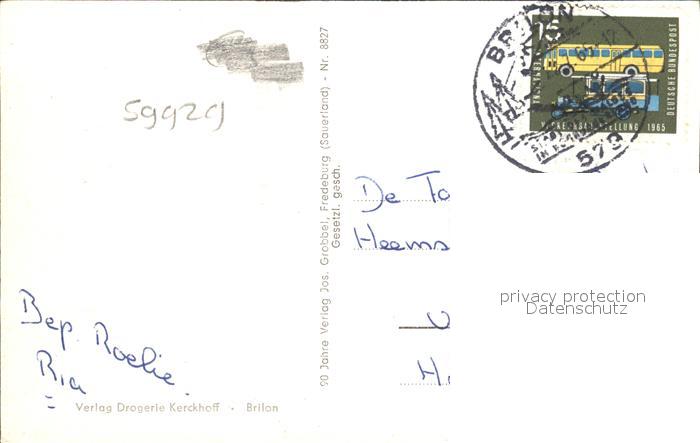 59929
Bep Roelie
Ria
Verlag Drogerie Kerckhoff · Brilon
90 Jahre Verlag Jos. Grobbel, Fredeburg (Sauerland) - Nr. 8827
Gesetzl. gesch.
BRILON
579
15
DEUTSCHE BUNDESPOST
VERKEHRSAUSSTELLUNG 1965
De To
Heems
privacy protection
Datenschutz
H.